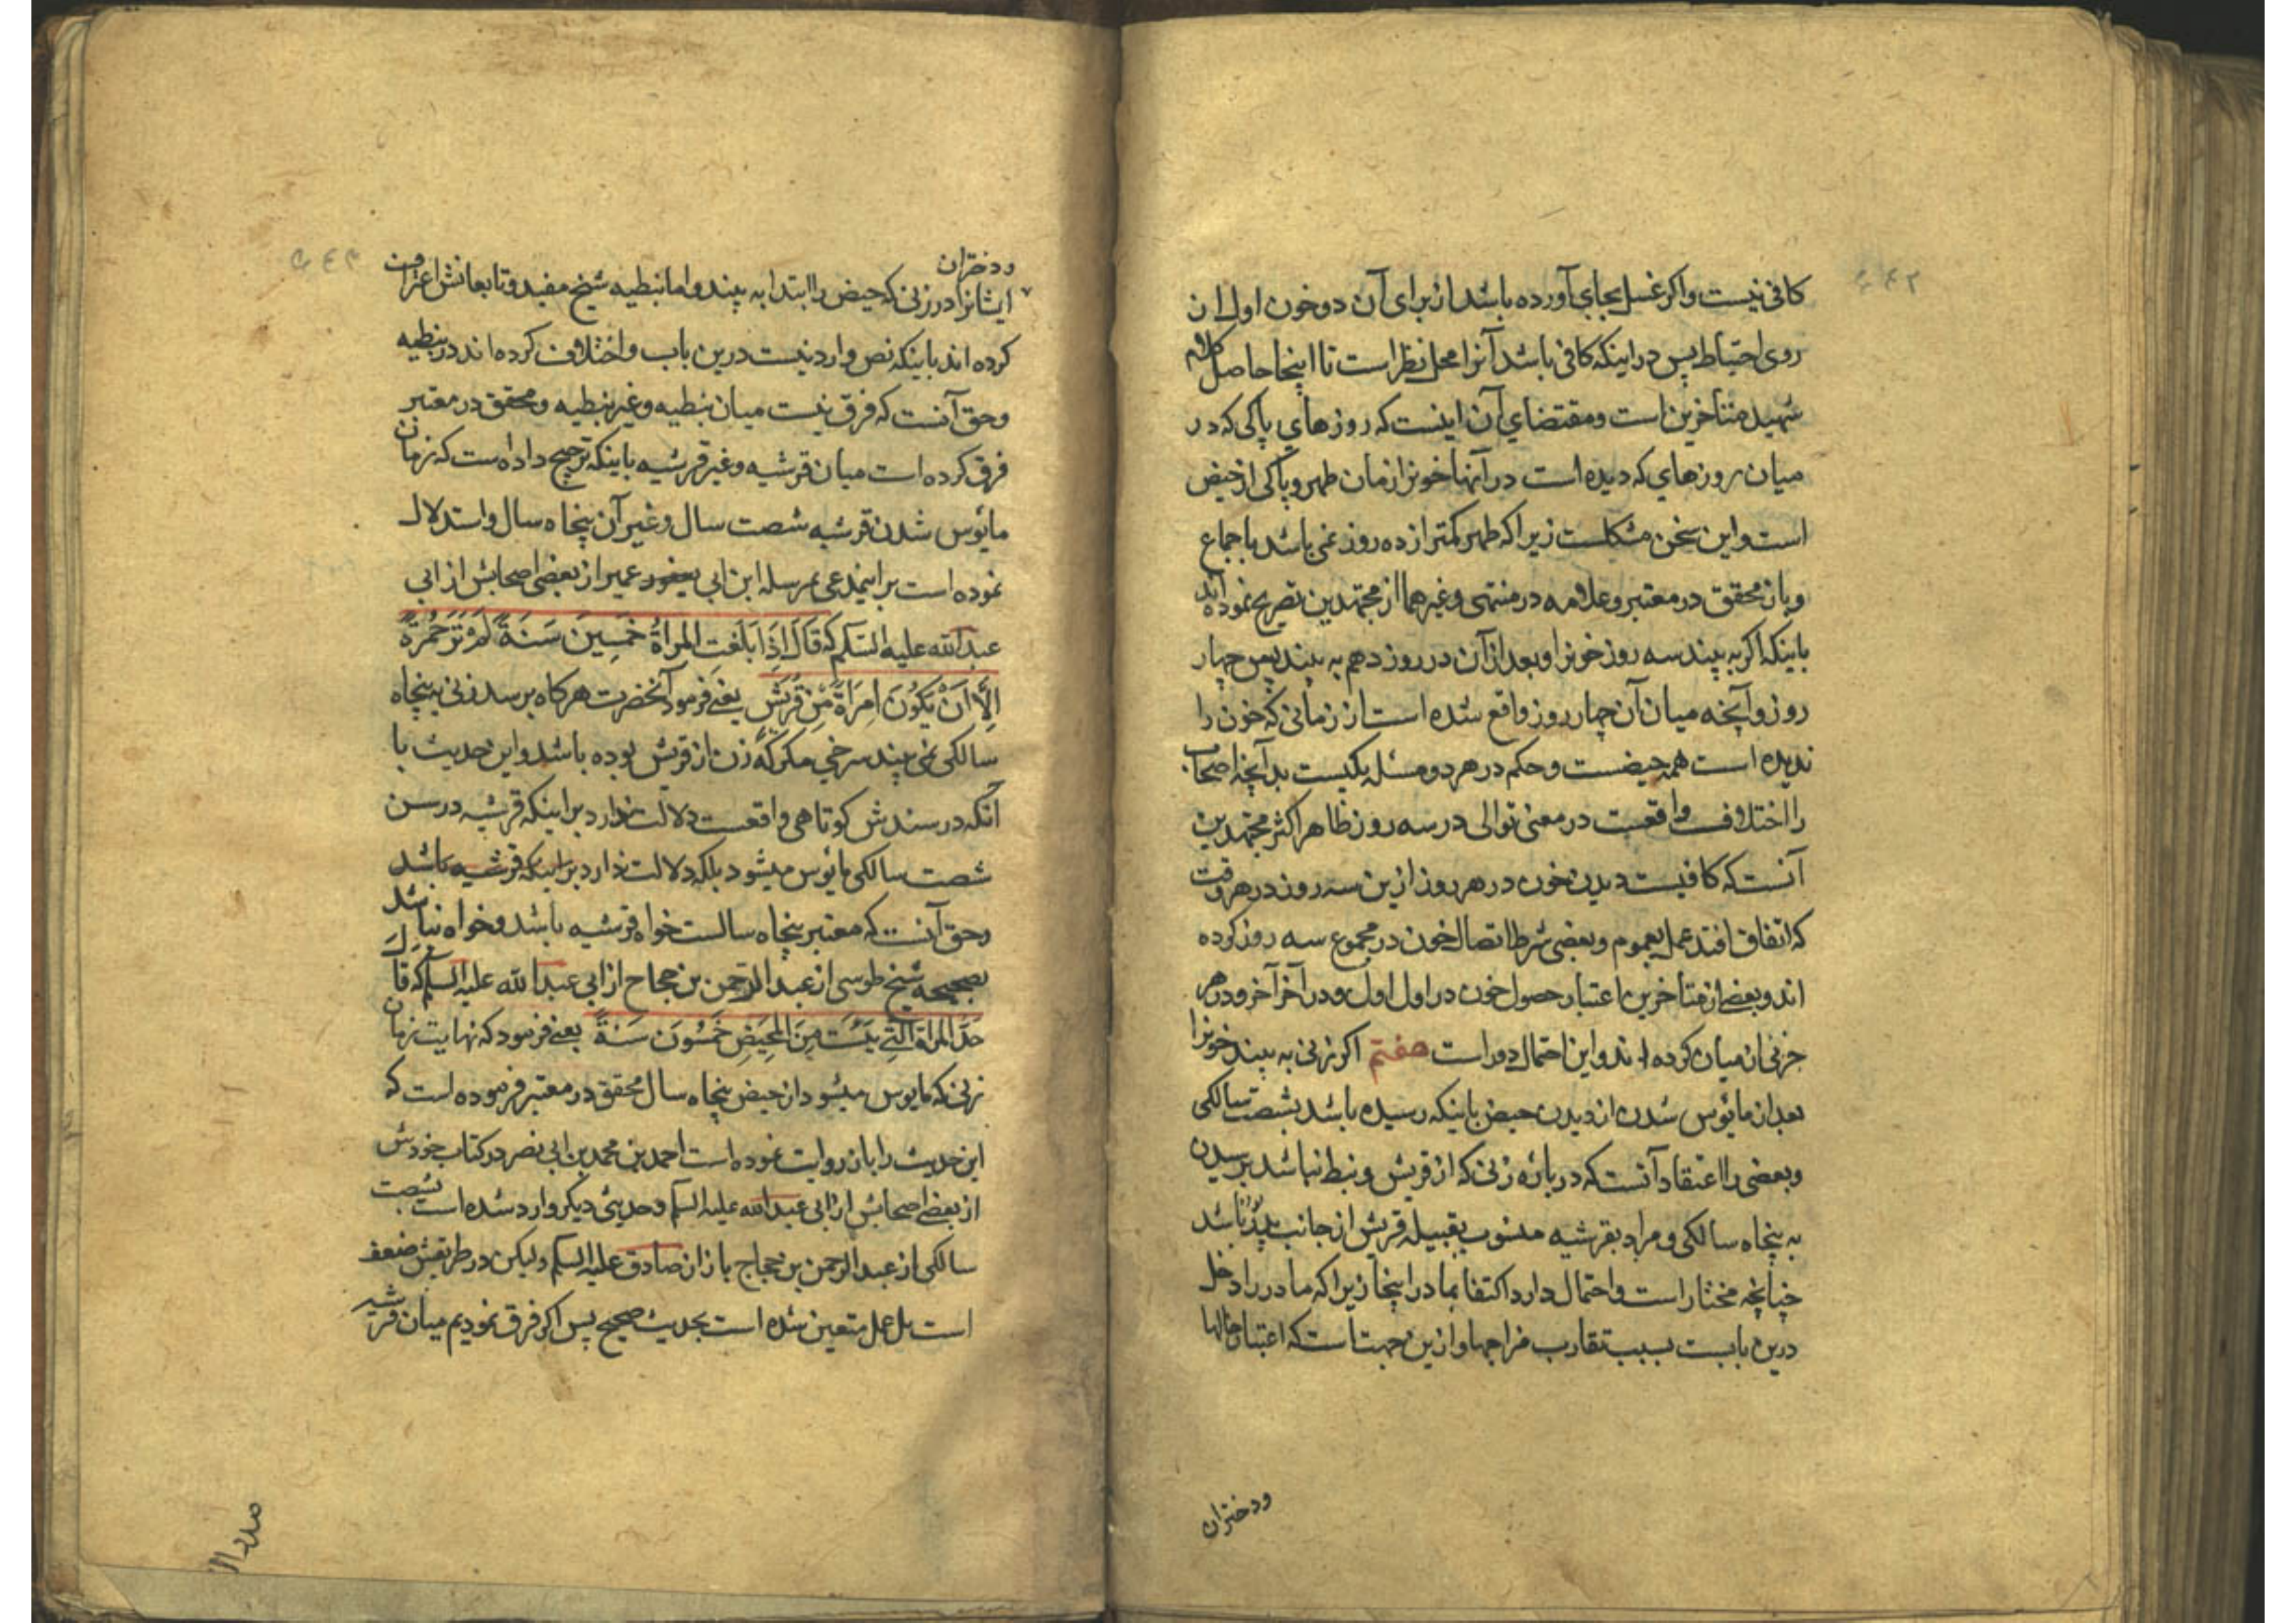 کافی نیست واکر غسل بجای آورده باشد از برای آن دو خون اول از
روی احتیاط پس در اینکه کافی باشد آنرا محل نظر است تا اینجا حاصل کلام
شهید متاخرین است ومقتضای آن اینست که روزهای پاکی که در
میان روزهای که دیده است در آنها خونرا زمان طهر و پاکی از حیض
است واین سخن مشکلست زیرا که طهر کمتر از ده روز نمی باشد باجماع
وبان محقق در معتبر وعلامه در منتهی وغیرهما از مجتهدین تصریح نموده اند
باینکه اکر به بیند سه روز خونرا وبعد از آن در روز دهم به بیند پس چهار
روز وآنچه میان آن چهار روز واقع شده است از زمانی که خون را
ندیده است همه حیضست وحکم در هر دو مسئله یکیست بدآنچه اصحاب
را اختلاف واقعست در معنی توالی در سه روز ظاهر اکثر مجتهدین
آنست که کافیست دیدن خون در هر روز ازین سه روز در هر وقت
که اتفاق افتد عمل بعموم وبعضی شرط اتصال خون در مجموع سه روز کرده
اند وبعضی از متاخرین اعتبار حصول خون در اول اول ودر آخر آخر ودر هر
جزئی از میان کرده اند واین احتمال دور است هفتم اکر زنی به بیند خونرا
بعد از مائوس شدن از دیدن حیض باینکه رسیده باشد بشصت سالکی
وبعضی را اعتقاد آنست که در باره زنی که از قریش ونبط نباشد برسیدن
به پنجاه سالکی ومراد بقرشیه منسوب بقبیله قریش از جانب پدر باشد
چنانچه مختار است واحتمال دارد اکتفا بمادر اینجا زیرا که مادر را دخل
درین بابست بسبب تقارب مزاجها وازین جهتست که اعتبار خالها
ودختران
ودختران
ایشانرا در زنی که حیض را ابتدا به بیند واما نبطیه شیخ مفید وتابعانش اعتراف
کرده اند باینکه نص وارد نیست درین باب واختلاف کرده اند در نبطیه
وحق آنست که فرق نیست میان نبطیه وغیر نبطیه ومحقق در معتبر
فرق کرده است میان قرشیه وغیر قرشیه باینکه ترجیح داده است که زمان
مائوس شدن قرشیه شصت سال وغیر آن پنجاه سال واستدلال
نموده است بر اینمدعی بمرسله ابن ابی عمیر از بعضی اصحابش از ابی
عبدالله علیه السلم که قَالَ اِذَا بَلَغَتِ المَراَةُ خَمسِینَ سَنَةً لَمْ تَرَ حُمرَةً
اِلَّا اَنْ یَکُونَ امرَاَةً مِّنْ قُرَیْشٍ یعنی فرمود آنحضرت هرکاه برسد زنی به پنجاه
سالکی نمی بیند سرخی مکر که زن از قریش بوده باشد واین حدیث با
آنکه در سندش کوتاهی واقعست دلالت ندارد بر اینکه قرشیه در سن
شصت سالکی مائوس میشود بلکه دلالت ندارد بر اینکه قرشیه باشد
وحق آنست که معتبر پنجاه سالست خواه قرشیه باشد وخواه نباشد
بصحیحه شیخ طوسی از عبدالرحمن بن حجاج از ابی عبدالله علیه السلم که قَالَ
حَدُّ المَراَةِ الَّتِی یَئِسَتْ مِنَ المَحِیضِ خَمسُونَ سَنَةً یعنی فرمود که نهایت زمان
زنی که مایوس میشود از حیض پنجاه سال محقق در معتبر فرموده است که
این حدیث را باز روایت نموده است احمد بن محمد بن ابی نصر در کتاب خودش
از بعضی اصحابش از ابی عبدالله علیه السلم وحدیثی دیکر وارد شده است بشصت
سالکی از عبدالرحمن بن حجاج باز از صادق علیه السلم ولیکن در طریقش ضعف
است بل عمل متعین شده است بحدیث صحیح پس اکر فرق نمودیم میان قرشیه